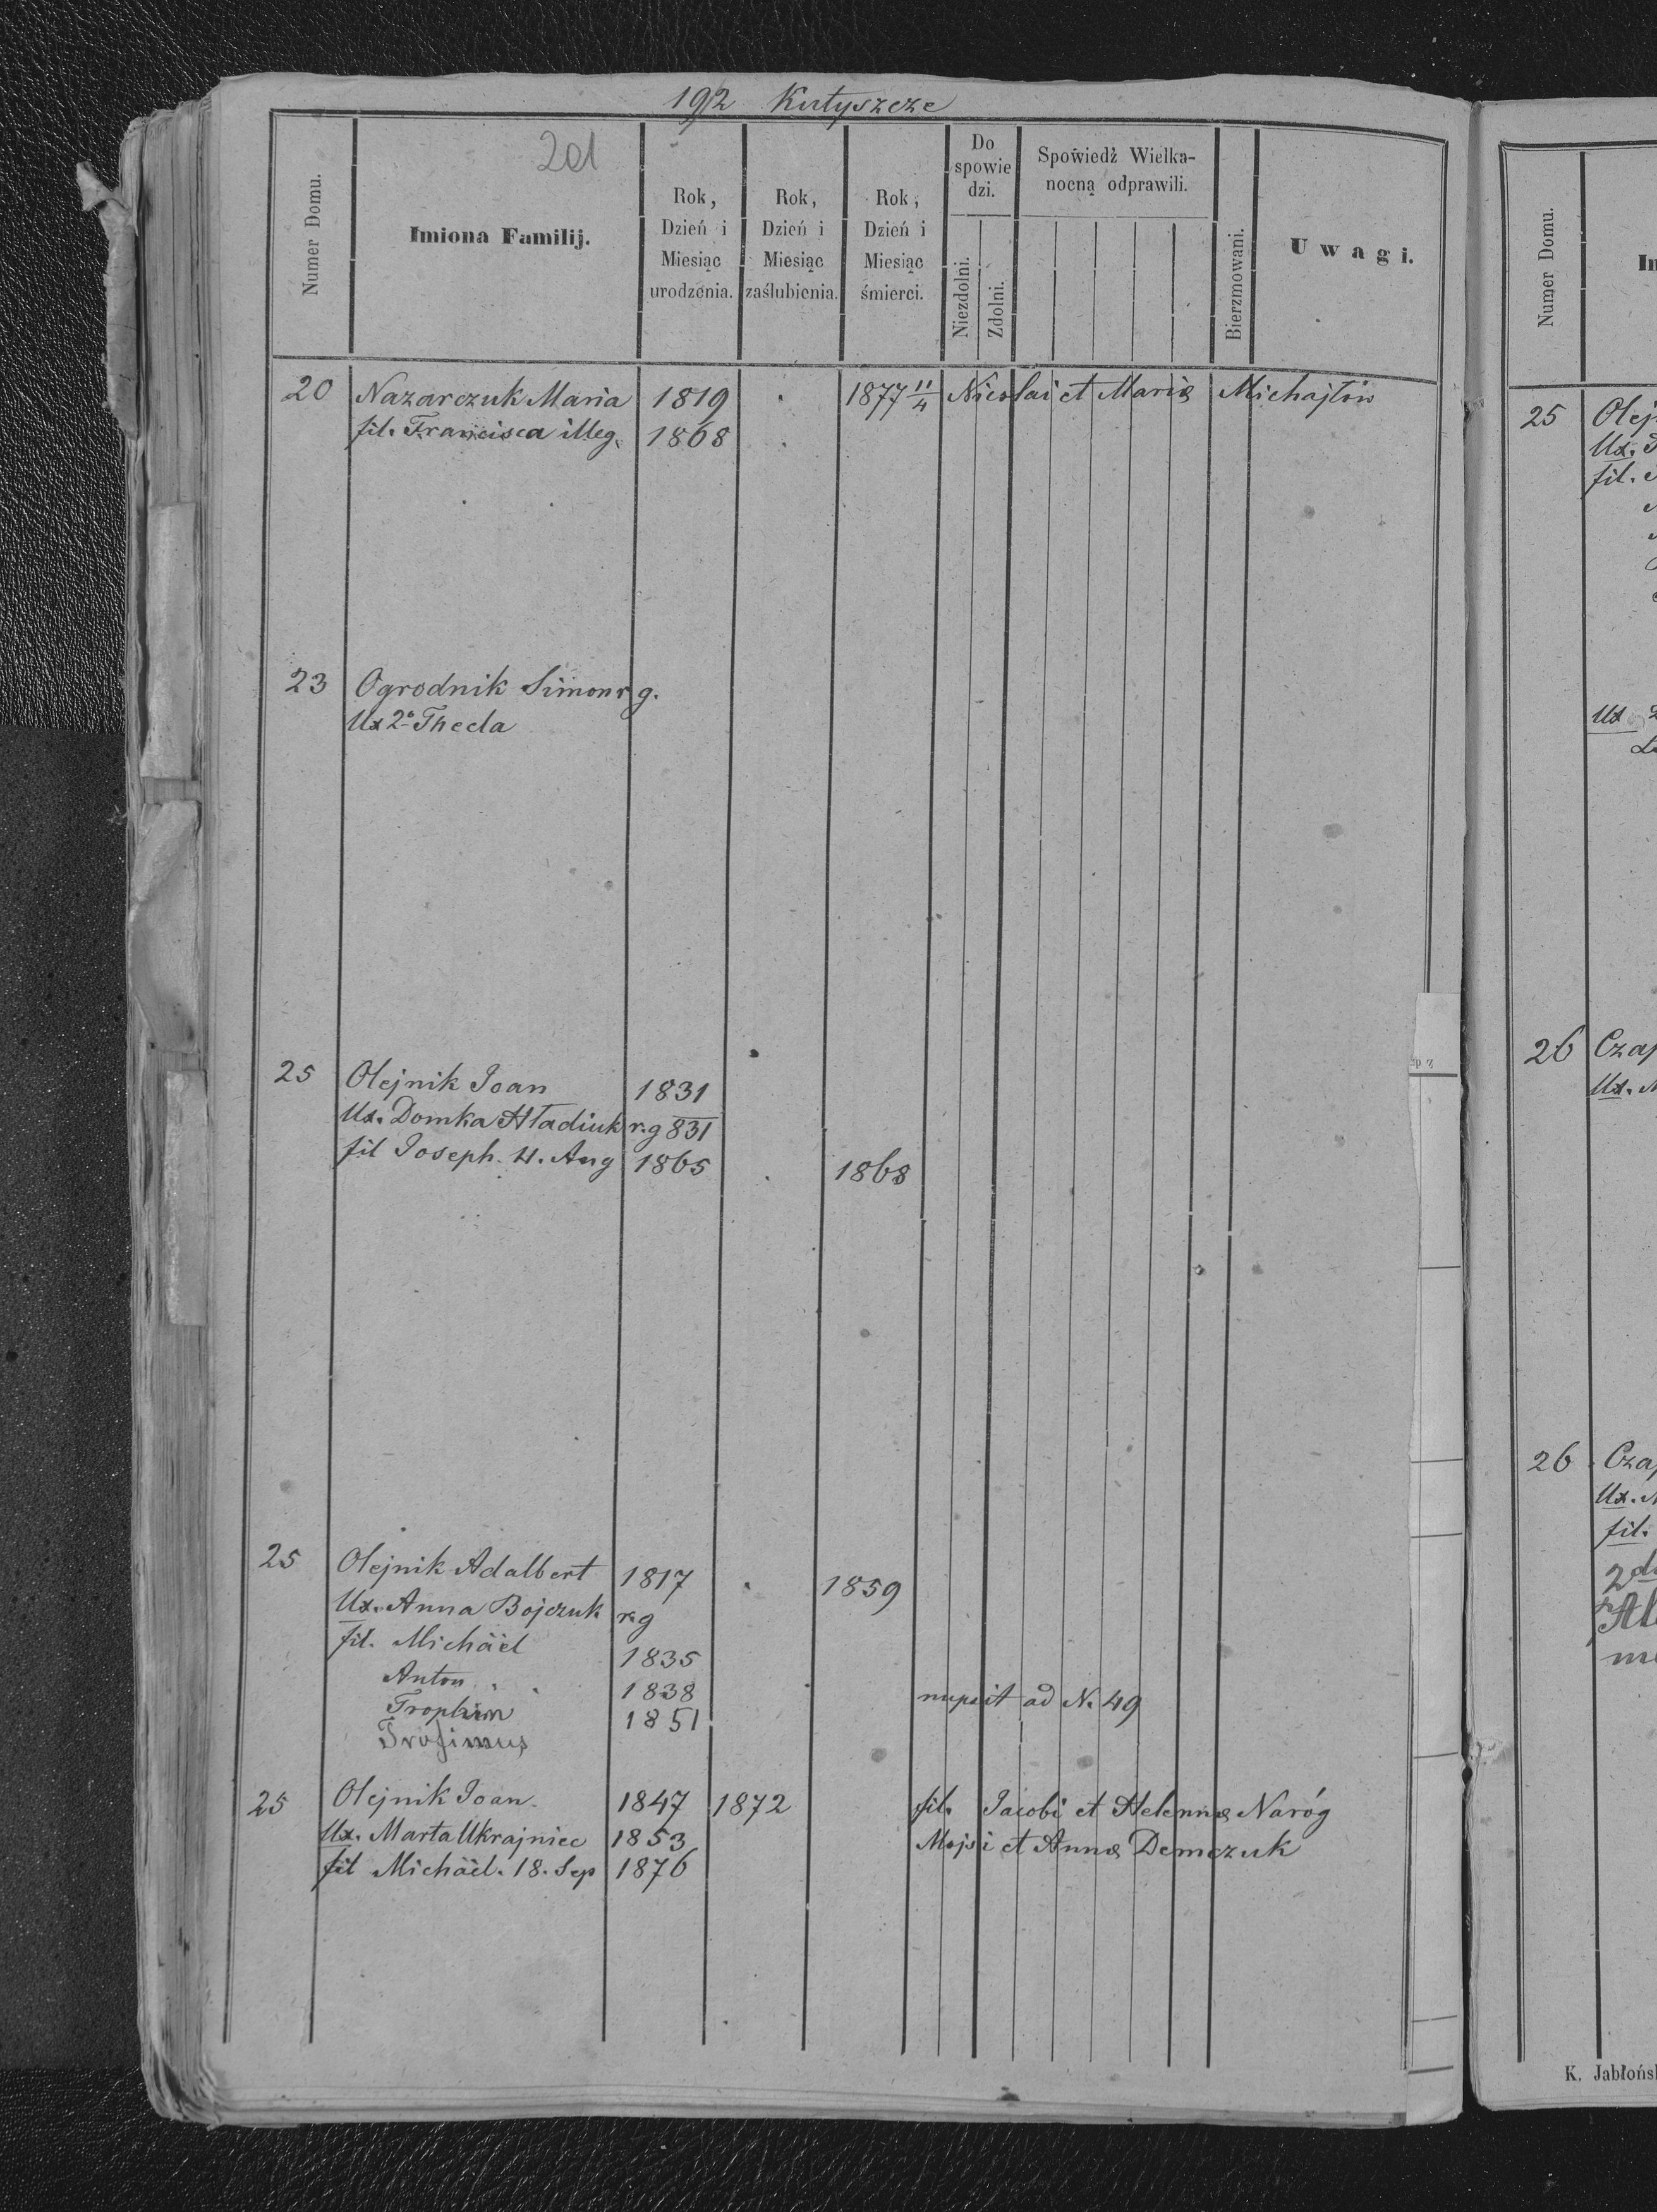 192 Kutyszcze
201
Numer Domu.
Imiona Familij.
Rok, Dzień i Miesiąc urodzenia.
Rok, Dzień i Miesiąc zaślubienia.
Rok, Dzień i Miesiąc śmierci.
Do spowiedzi.
Niezdolni.
Zdolni.
Spowiedź Wielkanocną odprawili.
Bierzmowani.
Uwagi.
20 Nazarczuk Maria 1819 1877 11/4 Nicolai et Mariæ Michajłów
fil. Francisca illeg. 1868
23 Ogrodnik Simon r. g.
Ux 2º Thecla
25 Olejnik Joan 1831
Ux. Domka Hładiuk r.g 831
fil Joseph. 4. Aug 1865 1868
25 Olejnik Adalbert 1817 1859
Ux. Anna Bojczuk r.g
fil. Michäel 1835
Anton 1838 nupsit ad N. 49
Trophim 1851
Trofimus
25 Olejnik Joan 1847 1872 fil. Jacobi et Helennæ Naróg
Ux. Marta Ukrajniec 1853 Mojsi et Annæ Demczuk
fil Michäel. 18. Sep 1876
Numer Domu.
25 Olej
Ux.
fil.
Ux
26 Czap
Ux.
26 Czap
Ux.
fil.
K. Jabłońs